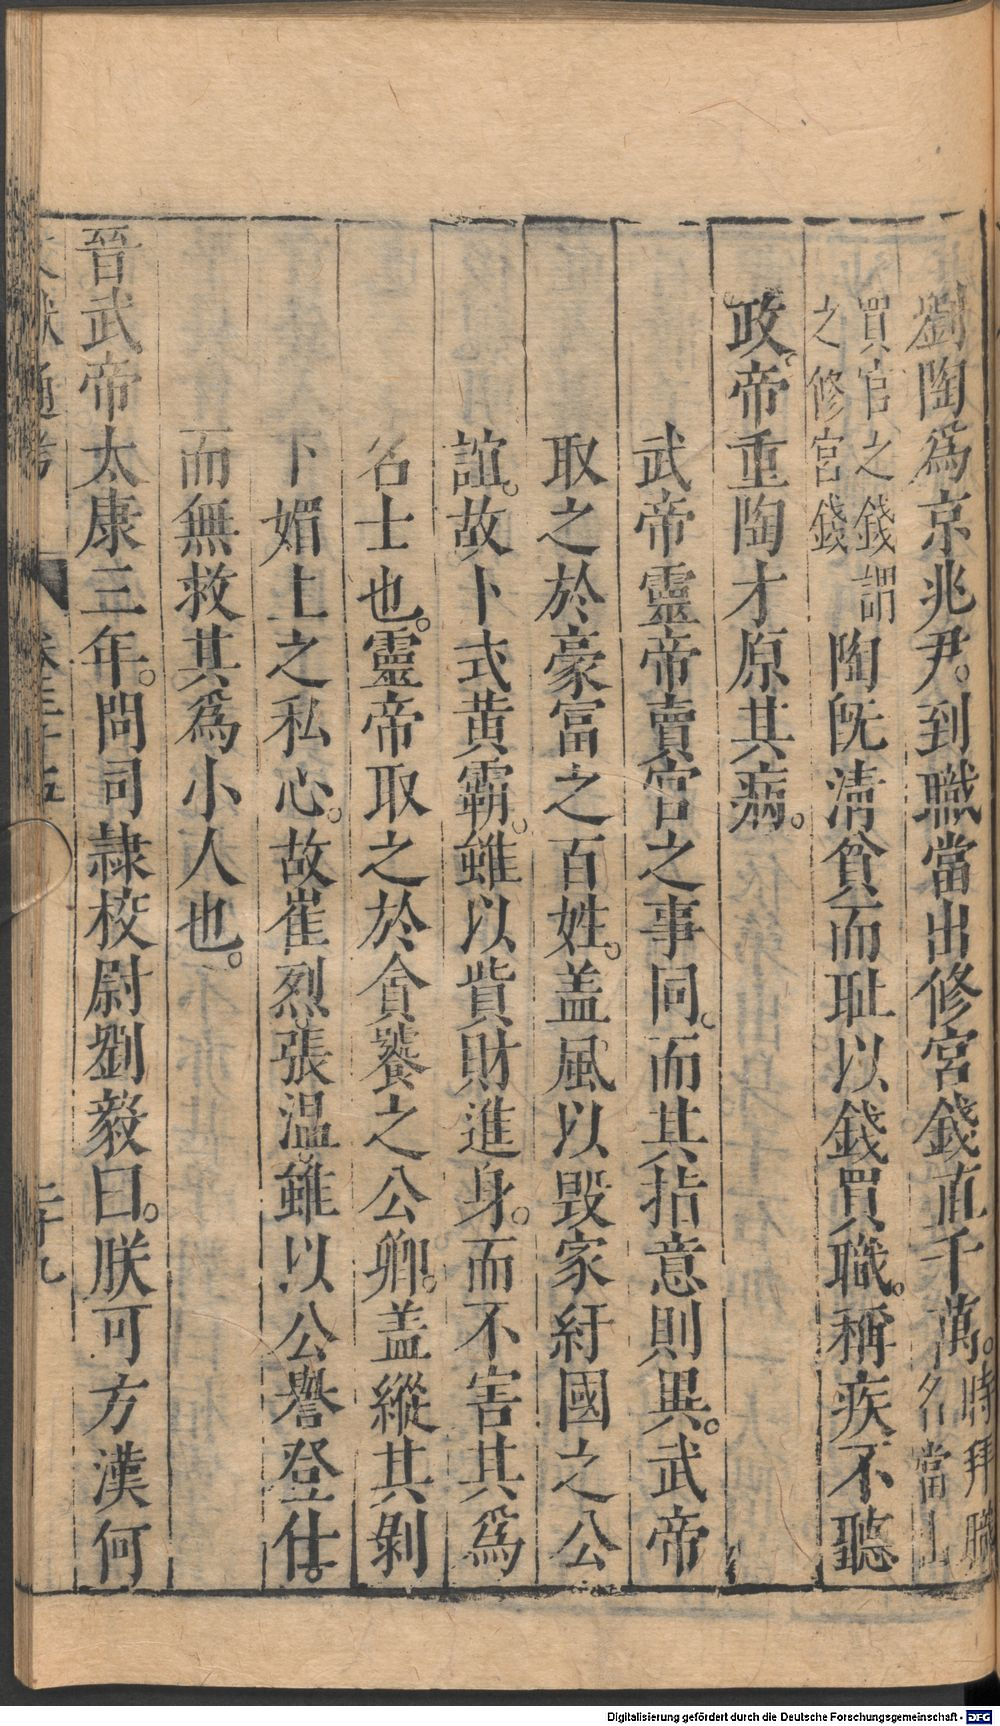 劉陶爲京兆尹。到職當出修宮錢直千萬。時拜職名當出
買官之錢謂之修宮錢陶旣淸貧而耻以錢買職。稱疾不聽
政。帝重陶才原其病。
武帝靈帝賣官之事同。而其指意則異。武帝
取之於豪富之百姓。盖風以毀家紓國之公
誼。故卜式黄霸。雖以貲財進身。而不害其爲
名士也。靈帝取之於貪饕之公卿。盖縱其剝
下媚上之私心。故崔烈。張温。雖以公譽登仕。
而無救其爲小人也。
晉武帝太康三年。問司隷校尉劉毅曰。朕可方漢何
文獻通考 卷三十五 二十九
Digitalisierung gefördert durch die Deutsche Forschungsgemeinschaft - DFG